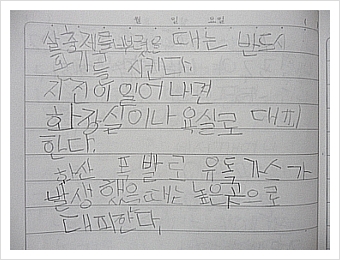 월 일 요일
살충제를 뿌렸을 때는 반드시
환기를 시킨다.
지진이 일어나면
화장실이나 욕실로 대피
한다.
화산 폭발로 유독가스가
발생했을때는 높은곳으로
대피한다.